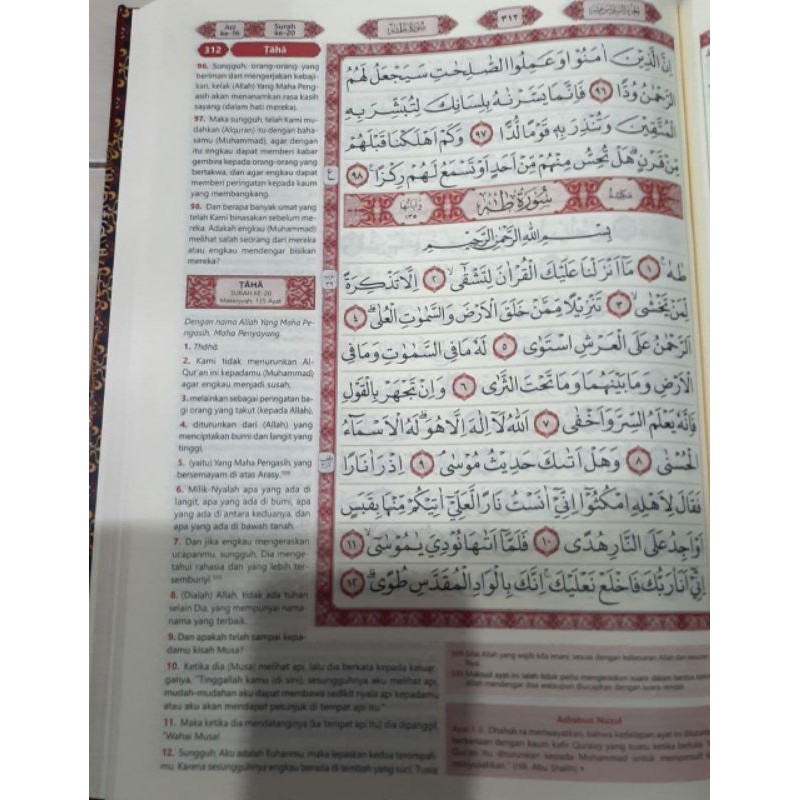 Juz ke-16
Surah ke-20
سورة طه
٣١٢
312
Ṭāhā
96. Sungguh, orang-orang yang
beriman dan mengerjakan kebaji-
kan, kelak (Allah) Yang Maha Peng-
asih akan menanamkan rasa kasih
sayang (dalam hati mereka).
97. Maka sungguh, telah Kami mu-
dahkan (Alquran) itu dengan baha-
samu (Muhammad), agar dengan
itu engkau dapat memberi kabar
gembira kepada orang-orang yang
bertakwa, dan agar engkau dapat
memberi peringatan kepada kaum
yang membangkang.
98. Dan berapa banyak umat yang
telah Kami binasakan sebelum me-
reka. Adakah engkau (Muhammad)
melihat salah seorang dari mereka
atau engkau mendengar bisikan
mereka?
ṬĀHĀ
SURAH KE-20
Makkiyyah, 135 Ayat
Dengan nama Allah Yang Maha Pe-
ngasih, Maha Penyayang.
1. Ṭhāhā.
2. Kami tidak menurunkan Al-
Qur'an ini kepadamu (Muhammad)
agar engkau menjadi susah;
3. melainkan sebagai peringatan ba-
gi orang yang takut (kepada Allah),
4. diturunkan dari (Allah) yang
menciptakan bumi dan langit yang
tinggi,
5. (yaitu) Yang Maha Pengasih, yang
bersemayam di atas Arasy.
6. Milik-Nyalah apa yang ada di
langit, apa yang ada di bumi, apa
yang ada di antara keduanya, dan
apa yang ada di bawah tanah.
7. Dan jika engkau mengeraskan
ucapanmu, sungguh, Dia menge-
tahui rahasia dan yang lebih ter-
sembunyi.
8. (Dialah) Allah, tidak ada tuhan
selain Dia, yang mempunyai nama-
nama yang terbaik.
9. Dan apakah telah sampai kepa-
damu kisah Musa?
10. Ketika dia (Musa) melihat api, lalu dia berkata kepada keluar-
ganya, "Tinggallah kamu (di sini), sesungguhnya aku melihat api,
mudah-mudahan aku dapat membawa sedikit nyala api kepadamu
atau aku akan mendapat petunjuk di tempat api itu."
11. Maka ketika dia mendatanginya (ke tempat api itu) dia dipanggil,
"Wahai Musa!
12. Sungguh, Aku adalah Tuhanmu, maka lepaskan kedua terompah-
mu. Karena sesungguhnya engkau berada di lembah yang suci, Tuwa
اِنَّ الَّذِيْنَ اٰمَنُوْا وَعَمِلُوا الصّٰلِحٰتِ سَيَجْعَلُ لَهُمُ
الرَّحْمٰنُ وُدًّا ٩٦ فَاِنَّمَا يَسَّرْنٰهُ بِلِسَانِكَ لِتُبَشِّرَ بِهِ
الْمُتَّقِيْنَ وَتُنْذِرَ بِهٖ قَوْمًا لُّدًّا ٩٧ وَكَمْ اَهْلَكْنَا قَبْلَهُمْ
مِّنْ قَرْنٍۗ هَلْ تُحِسُّ مِنْهُمْ مِّنْ اَحَدٍ اَوْ تَسْمَعُ لَهُمْ رِكْزًا ٩٨
مكية سورة طه واياتها ١٣٥
بِسْمِ اللّٰهِ الرَّحْمٰنِ الرَّحِيْمِ
طٰهٰ ۚ ١ مَآ اَنْزَلْنَا عَلَيْكَ الْقُرْاٰنَ لِتَشْقٰٓى ۙ ٢ اِلَّا تَذْكِرَةً
لِّمَنْ يَّخْشٰى ۙ ٣ تَنْزِيْلًا مِّمَّنْ خَلَقَ الْاَرْضَ وَالسَّمٰوٰتِ الْعُلٰى ۗ ٤
اَلرَّحْمٰنُ عَلَى الْعَرْشِ اسْتَوٰى ٥ لَهٗ مَا فِى السَّمٰوٰتِ وَمَا فِى
الْاَرْضِ وَمَا بَيْنَهُمَا وَمَا تَحْتَ الثَّرٰى ٦ وَاِنْ تَجْهَرْ بِالْقَوْلِ
فَاِنَّهٗ يَعْلَمُ السِّرَّ وَاَخْفٰى ٧ اَللّٰهُ لَآ اِلٰهَ اِلَّا هُوَۗ لَهُ الْاَسْمَاۤءُ
الْحُسْنٰى ٨ وَهَلْ اَتٰىكَ حَدِيْثُ مُوْسٰى ٩ اِذْ رَاٰ نَارًا
فَقَالَ لِاَهْلِهِ امْكُثُوْٓا اِنِّيْٓ اٰنَسْتُ نَارًا لَّعَلِّيْٓ اٰتِيْكُمْ مِّنْهَا بِقَبَسٍ
اَوْ اَجِدُ عَلَى النَّارِ هُدًى ١٠ فَلَمَّآ اَتٰىهَا نُوْدِيَ يٰمُوْسٰى ۙ ١١
اِنِّيْٓ اَنَا۠ رَبُّكَ فَاخْلَعْ نَعْلَيْكَۚ اِنَّكَ بِالْوَادِ الْمُقَدَّسِ طُوًى ۗ ١٢
Asbabun Nuzul